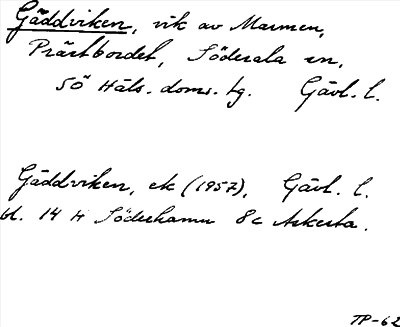 Gäddviken, vik av Marmen,
Prästbordet, Söderala sn,
SÖ Häls. doms. tg. Gävl. l.
Gäddviken, ek (1957), Gävl. l.
bl. 14 H Söderhamn 8 c Askesta.
TP-62